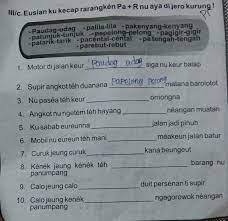 III/c. Eusian ku kecap rarangkén Pa + R nu aya di jero kurung!
-Paudag-udag -palila-lila -pakenyang-kenyang
-patunjuk-tunjuk -papelong-pelong -pagigir-gigir
-patarik-tarik -pacental-cental -patengah-tengah
-parebut-rebut
1. Motor di jalan keur Paudag udag siga nu keur balap
2. Supir angkot téh duanana Papelong pelong malana barolotot
3. Nu paséa téh keur omongna
4. Angkot nu ngetem téh hayang néangan muatan
5. Ku sabab eureunna jalan jadi pinuh
6. Mobil nu eureun téh mani méakeun jalan batur
7. Curuk jeung curuk kana beungeut
8. Kénék jeung kénék téh barang nu
panumpang
9. Calo jeung calo duit persénan ti supir
10. Calo jeung kénék ngagorowok néangan
panumpang